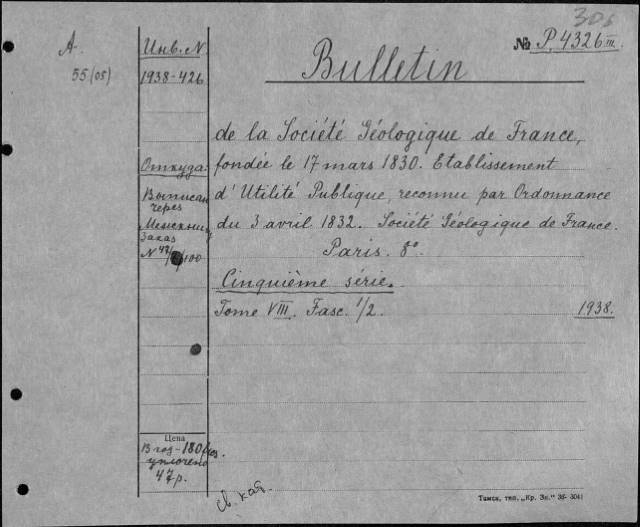 306
А.
55(05)
Инв. N.
1938-426
№ Р.4326 III
Bulletin
de la Société Géologique de France,
fondée le 17 mars 1830. Etablissement
d'Utilité Publique, reconnu par Ordonnance
du 3 avril 1832. Société Géologique de France.
Paris. 8°
Cinquième série.
Tome VIII. Fasc. 1/2. 1938.
Откуда:
Выписан
через
Заказ
Цена
В год-180
уплочено
47р.
св. кат.
Томск, тип. „Кр. Зн." 36- 3041